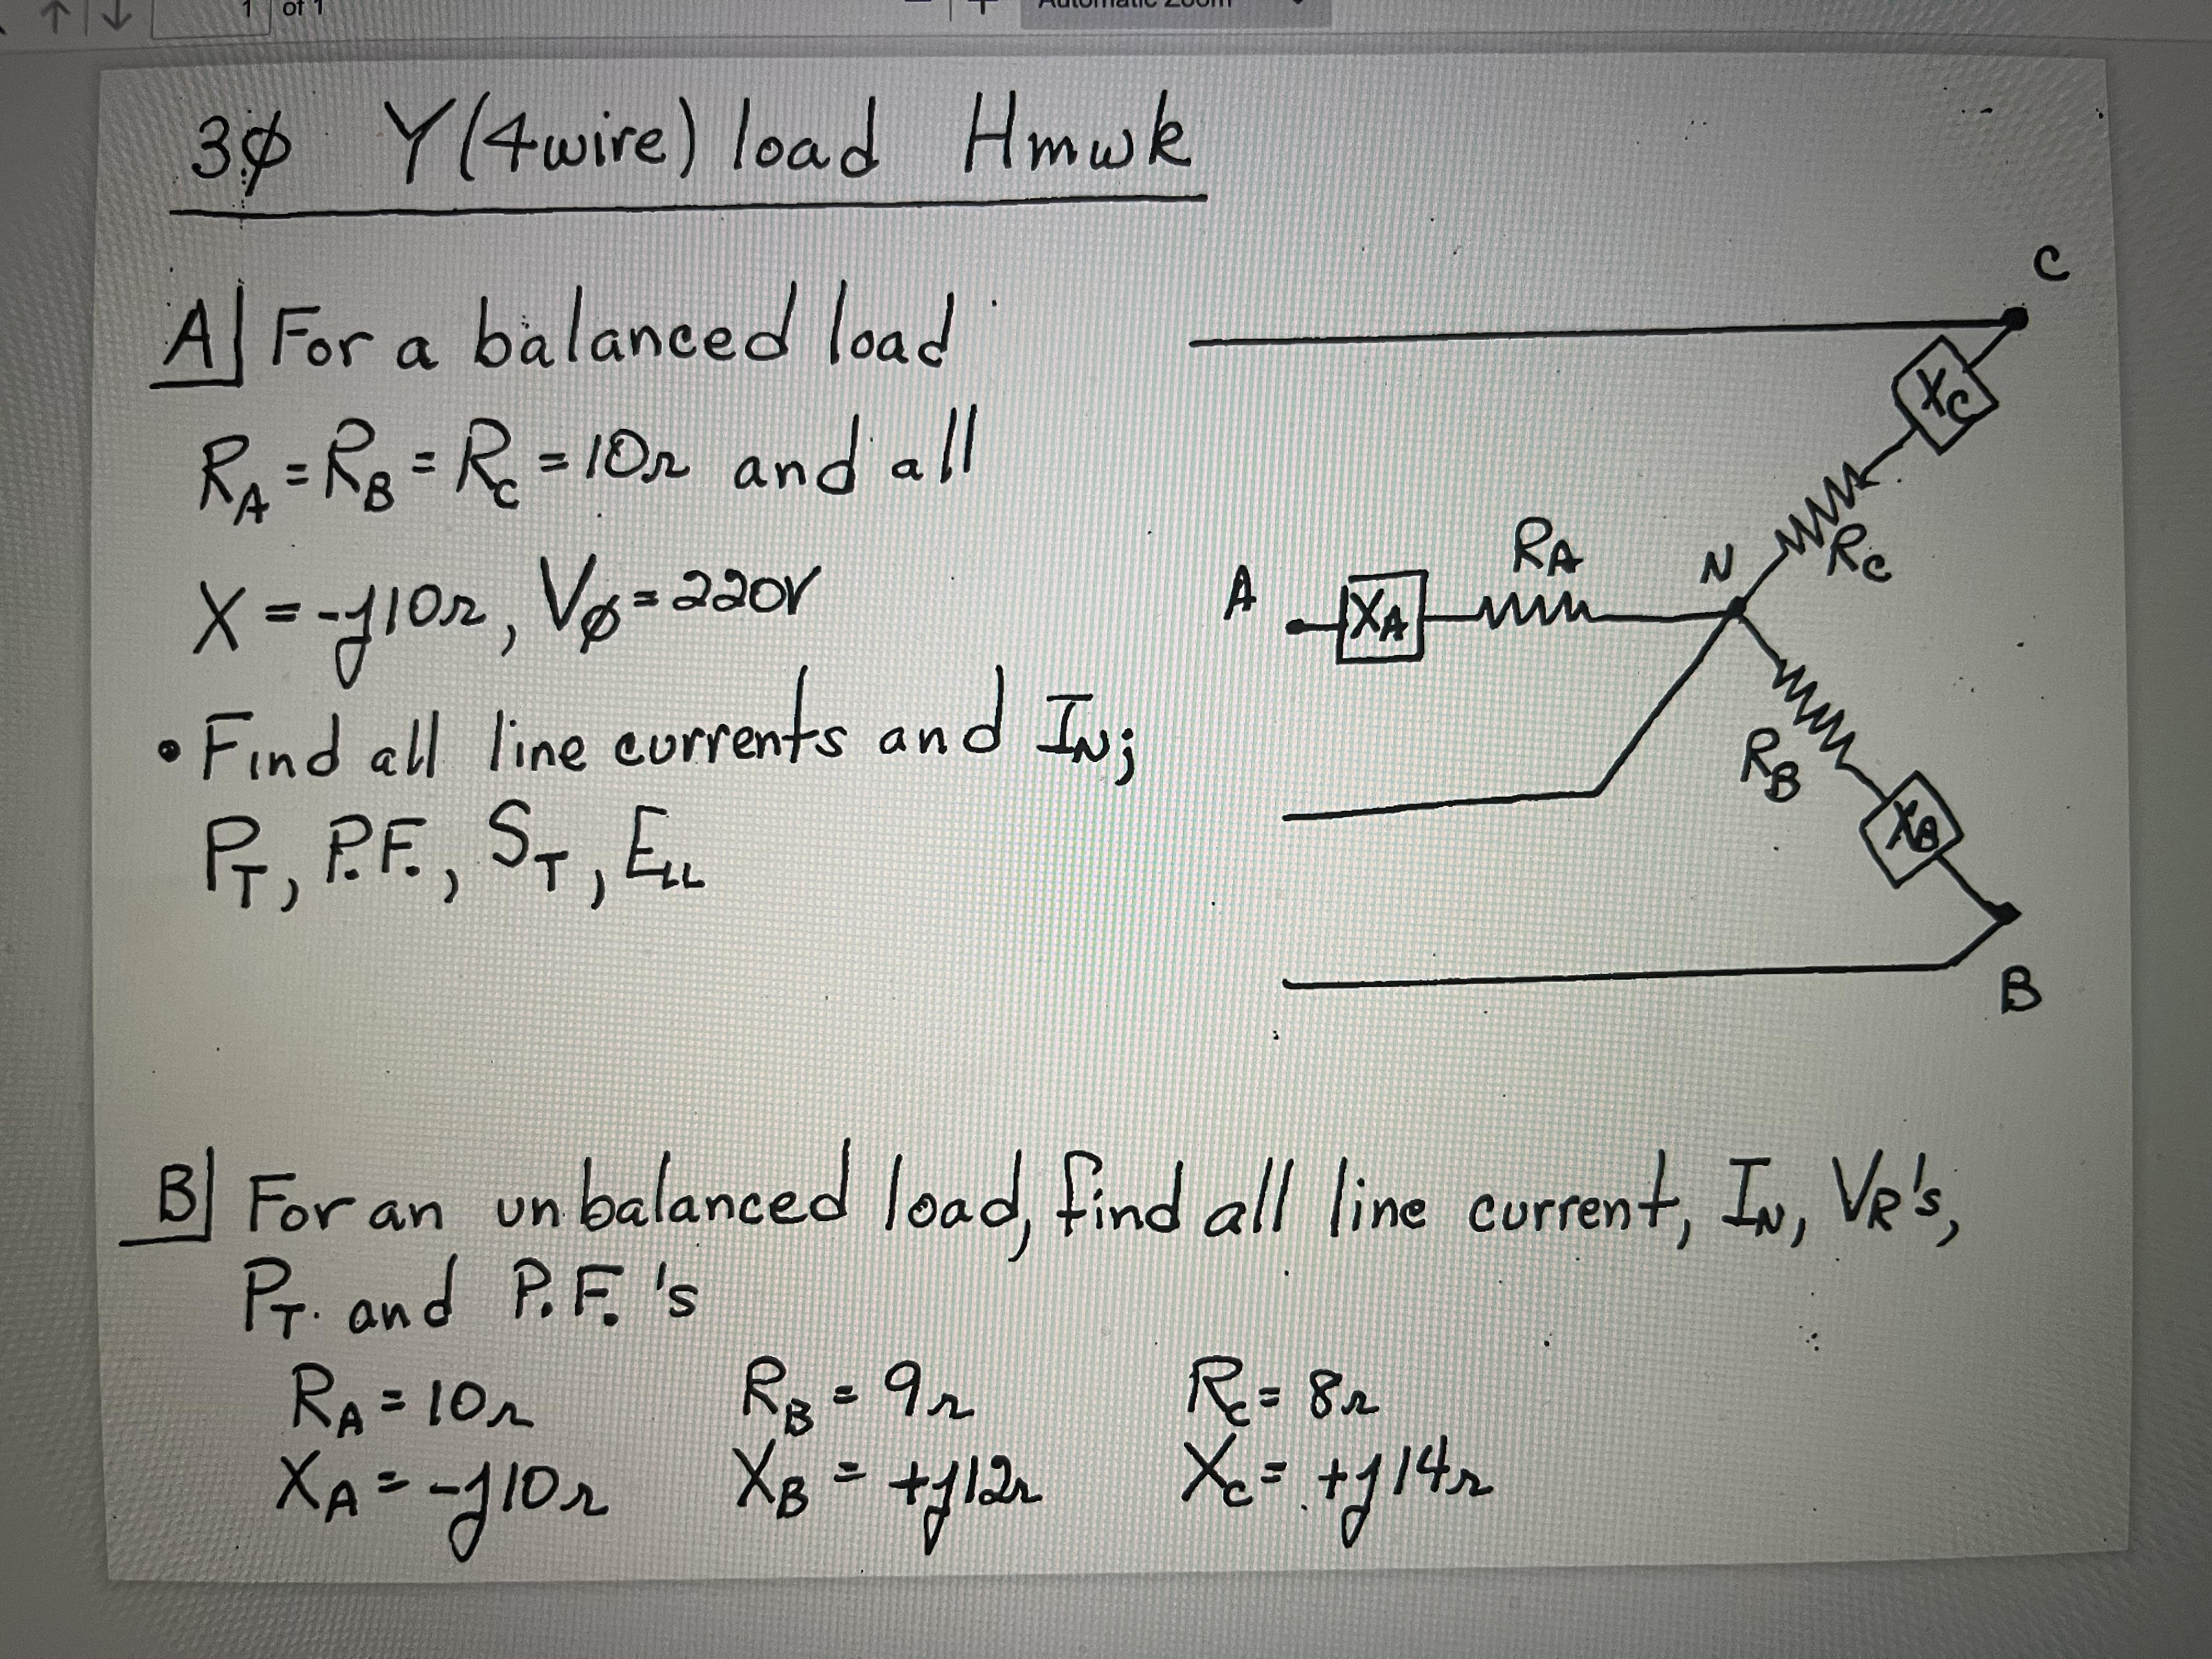 1 of 1
Automatic Zoom
3φ Y (4wire) load Hmwk
A] For a balanced load
R_A = R_B = R_C = 10Ω and all
X = -j10Ω, Vφ = 220V
• Find all line currents and I_N;
P_T, P.F., S_T, E_LL
C
X_C
R_C
R_A
N
A
X_A
R_B
X_B
B
B] For an unbalanced load, find all line current, I_N, V_R's,
P_T. and P.F.'s
R_A = 10Ω R_B = 9Ω R_C = 8Ω
X_A = -j10Ω X_B = +j12Ω X_C = +j14Ω